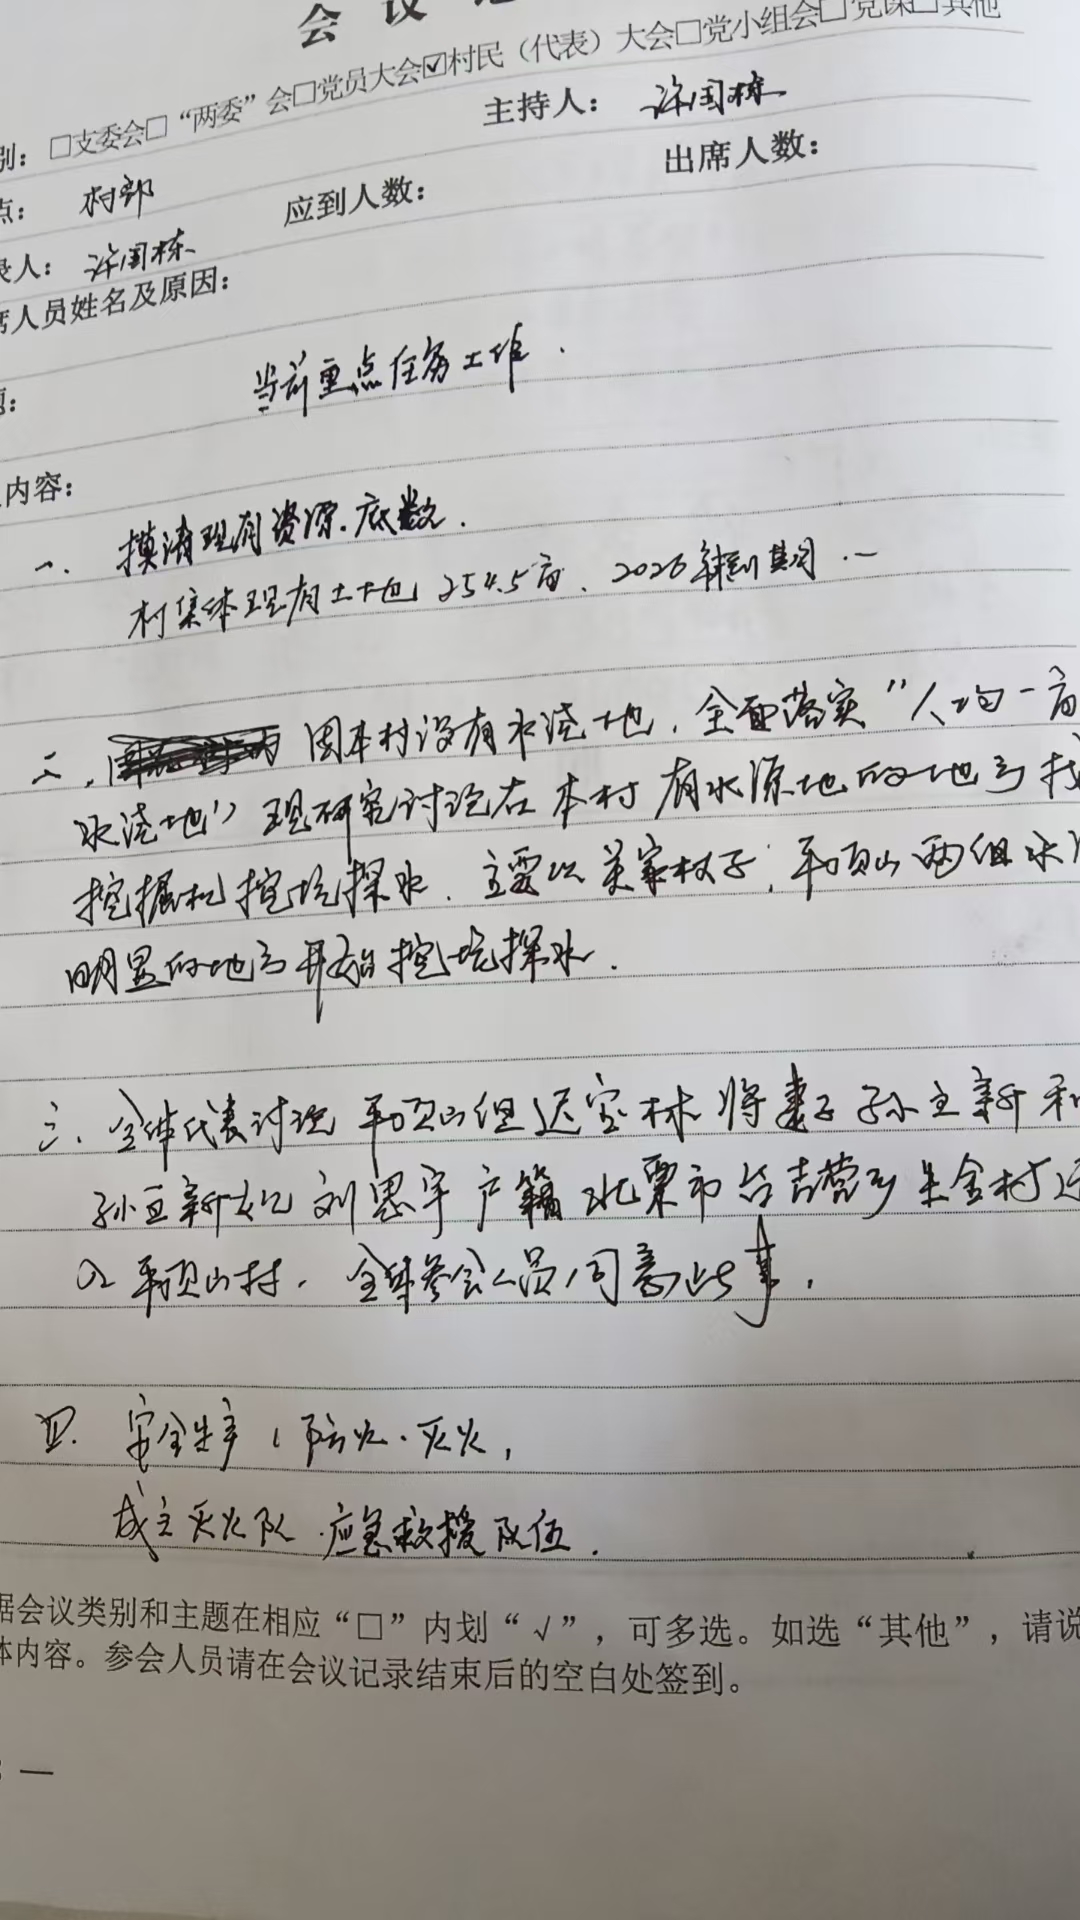 会 议
□支委会□“两委”会□党员大会☑村民（代表）大会□党小组会□党课□其他
别：
主持人： 许国栋
点： 村部 应到人数： 出席人数：
录人： 许国栋
席人员姓名及原因：
题： 当前重点任务工作.
内容：
一、摸清现有资源、底数.
村集体现有土地254.5亩、2026年到期.
二、因本村没有水浇地，全面落实“人均一亩
水浇地”现研究讨论在本村有水源地的地方找
挖掘机挖坑探水、主要以关家杖子，平顶山两组水
明显的地方开始挖坑探水.
三、全体代表讨论平顶山组迟宝林将妻子孙立新和
孙立新女儿刘思宇户籍北票市台吉营乡朱金村迁
入平顶山村、全体参会人员同意此事.
四. 安全生产（防火、灭火，
成立灭火队、应急救援队伍.
据会议类别和主题在相应“□”内划“√”，可多选。如选“其他”，请说
体内容。参会人员请在会议记录结束后的空白处签到。